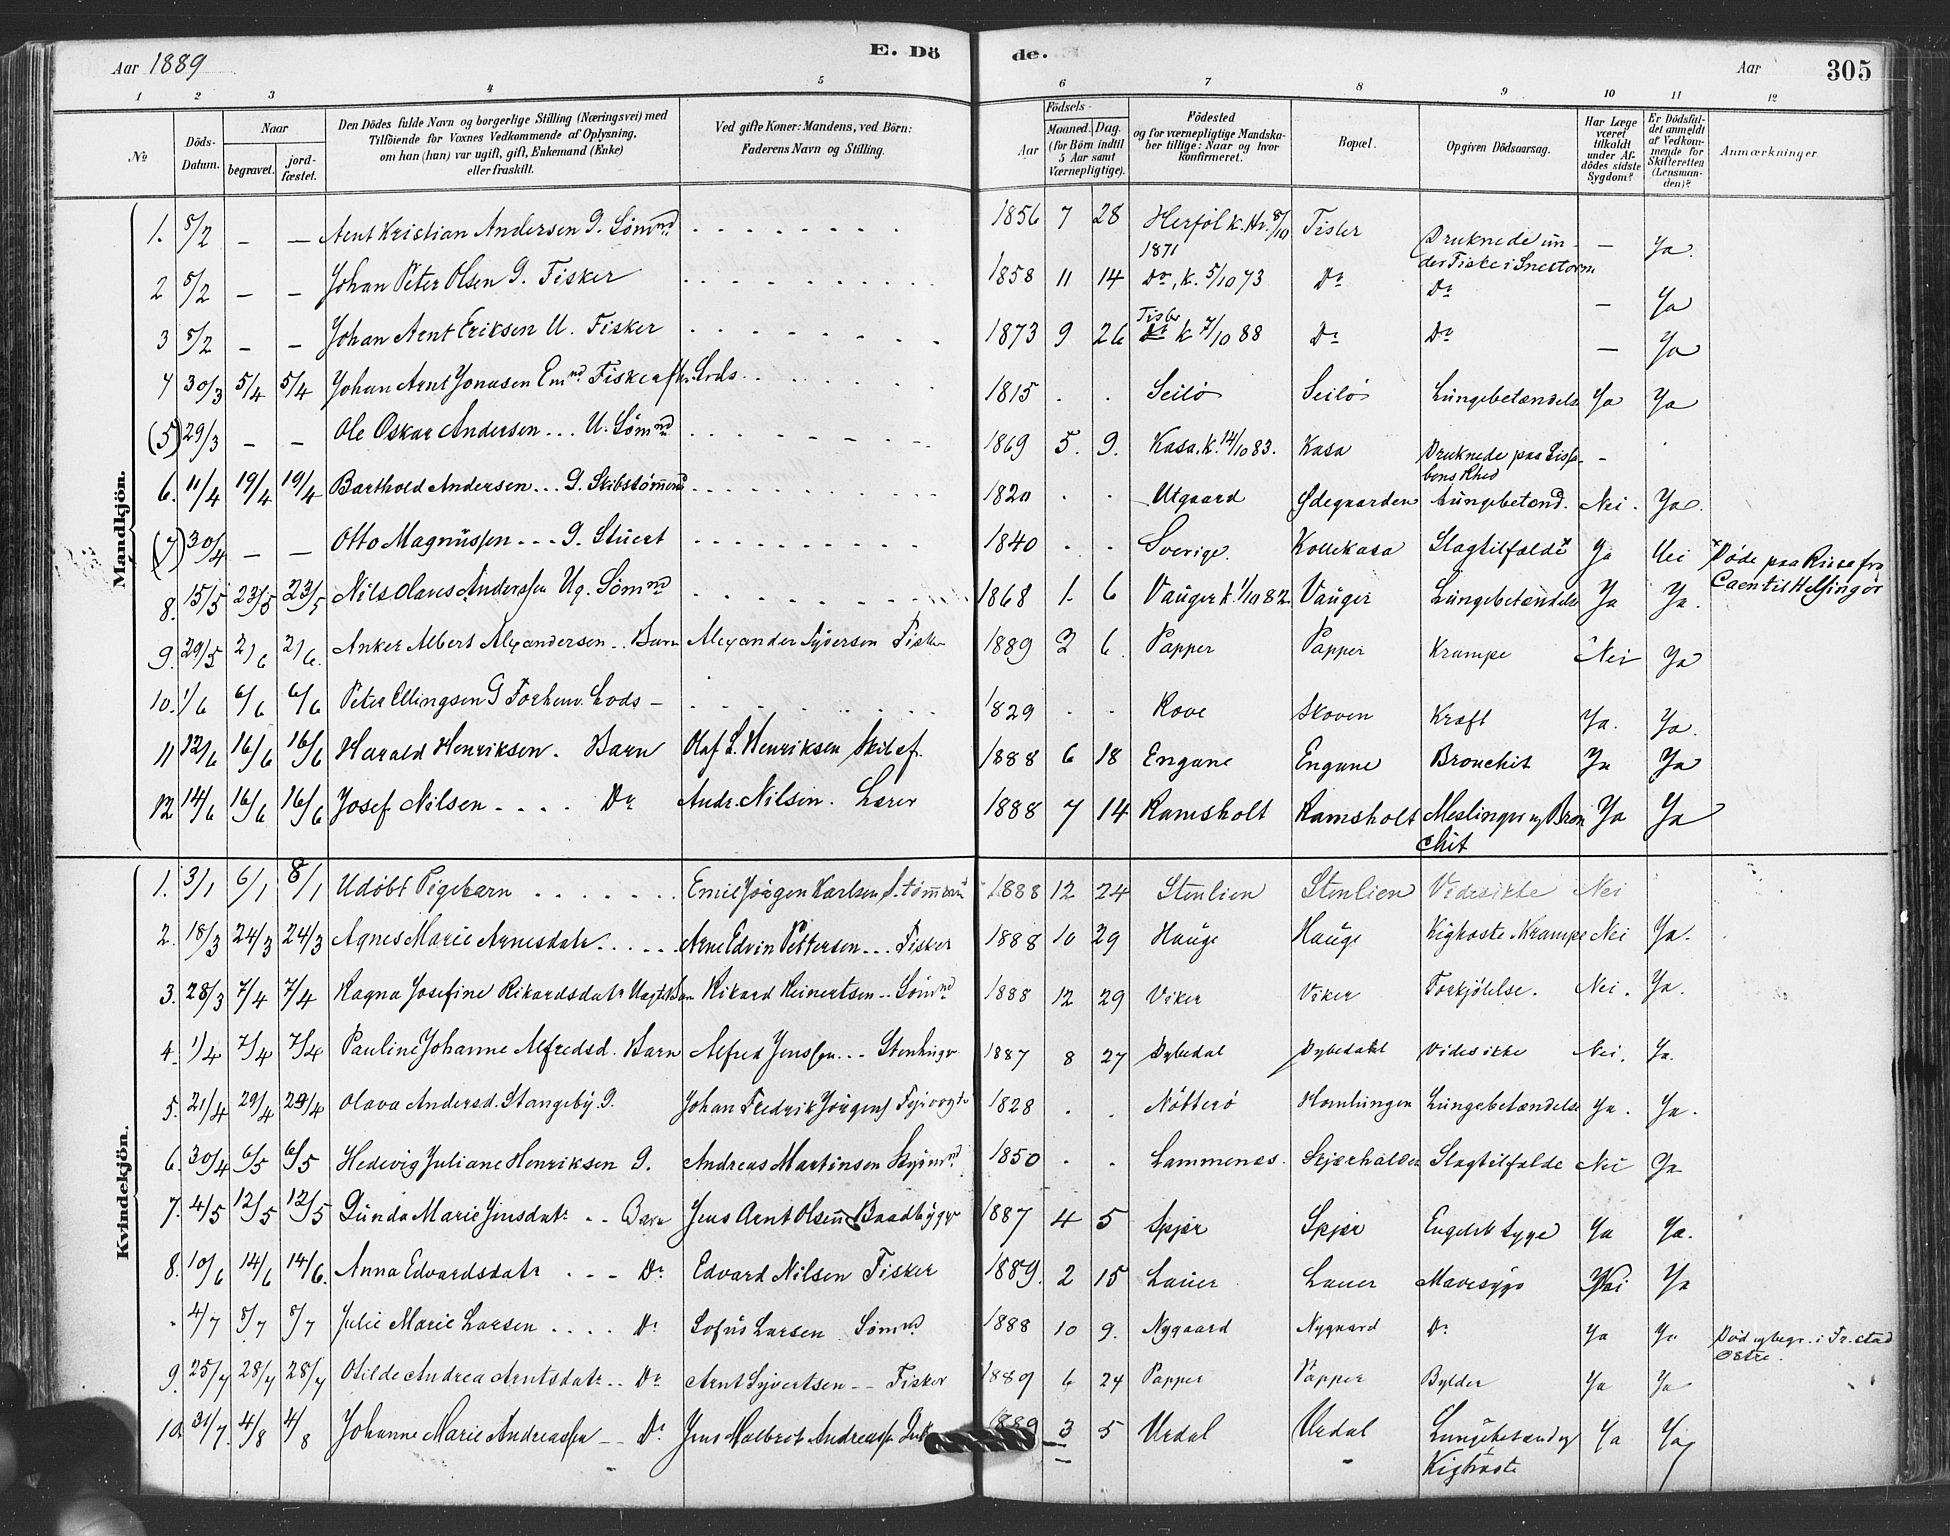 Aar 1889
E. Dö
de.
Aar
305
1 2 3 4 5 6 7 8 9 10 11 12
No
Döds-Datum.
Naar
begravet.
jord-fæstet.
Den Dödes fulde Navn og borgerlige Stilling (Næringsvei) med
Tilföiende for Voxnes Vedkommende af Oplysning,
om han (hun) var ugift, gift, Enkemand (Enke)
eller fraskilt.
Ved gifte Koner: Mandens, ved Börn:
Faderens Navn og Stilling.
Födsels-
Aar
Maaned. Dag.
(for Börn indtil
5 Aar samt
Værnepligtige).
Födested
og for værnepligtige Mandska-
ber tillige: Naar og hvor
konfirmeret.
Bopæl.
Opgiven Dödsaarsag.
Har Læge
været
tilkaldt
under Af-
dödes sidste
Sygdom?
Er Dödsfal-
det anmeldt
af Vedkom-
mende for
Skifteretten
(Lensman-
den)?
Anmærkninger.
Mandkjön.
1. 5/2 – – Arnt Kristian Andersen G. Sømnd 1856 7 28 Herføl k. Hv. 8/10 1871 Tisler Druknede un-der Fiske i Snestorm – Ja.
2 5/2 – – Johan Peter Olsen G. Fisker 1858 11 14 Do, k. 5/10 73 Do Do – Ja
3 5/2 – – Johan Arnt Eriksen U. Fisker 1873 9 26 Tisler k 7/10 88 Do Do – Ja
4 30/3 5/4 5/4 Johan Arnt Jonasen Emnd Fisker Lods 1815 . . Seilø Seilø Lungebetændelse Ja Ja
(5) 29/3 – – Ole Oskar Andersen... U. Sømnd 1869 5. 9. Kasa, k. 14/10 83. Kasa Druknede paa Lissa-bons Rhed –
6. 11/4 19/4 19/4 Barthold Andersen... G. Skibstømmd 1820 . . Utgaard Ødegaarden Lungebetænd. Nei. Ja.
(7) 30/4 – – Otto Magnussen --- G. Stuert 1840 . . Sverige. Kollekasa Slagtilfælde* Ja Nei *Døde paa Reise fra Caen til Helsingør
8. 15/5 23/5 23/5 Nils Olaves Anderssen Ug. Sømnd 1868 1. 6 Vauger k. 1/10 82 Vauger Lungebetændelse Ja Ja.
9. 29/5 2/6 2/6. Anker Albert Alexandersen.. Barn Alexander Syversen Fisker 1889 2 6. Papper Papper Krampe Nei Ja
10. 1/6 6/6 6/6 Peter Ellingsen G Forhenv. Lods – 1829 . . Rove Skoven Kræft Ja. Ja.
11 12/6 16/6 16/6 Harald Henriksen. Barn Olaf L. Henriksen Skibsf. 1888 6 18 Engane Engane Bronchit Ja Ja
12 14/6 16/6 16/6 Josef Nilsen - . . . Do Andr. Nilsen. Lærer 1888 7 14 Ramsholt Ramsholt Meslinger og Bron chit Ja Ja
Kvindekjön.
1. 3/1 6/1 8/1 Udøbt Pigebarn Emil Jørgen Karlsen S.tømmermd 1888 12 24 Stenlien Stenlien Vides ikke Nei
2. 18/3 24/3 24/3 Agnes Marie Arnesdatr. Arne Edvin Pettersen... Fisker 1888 10 29 Hauge Hauge Kighoste Krampe Nei Ja.
3. 28/3 7/4 7/4 Ragna Josefine Rikardsdatr Rikard Reinertsen.. Sømnd 1888 12 29 Viker Viker Forkjølelse. Nei. Ja.
4. 1/4 7/4 7/4 Pauline Johanne Alfredsd. Barn Alfred Jenssen... Stenhugr 1887 8 27 Dybedal Dybedahl Vides ikke Nei. Ja.
5. 21/4 29/4 29/4 Olava Andersd. Stangeby G. Johan Fredrik Jørgens Fyrvogte 1828 . . Nötterö Homlungen Lungebetændelse Ja. Ja.
6. 30/4 6/5 6/5 Hedevig Juliane Henriksen G. Andreas Martinsen Styrmnd 1850 . . Lammenæs. Skjærhalden Slagtilfælde Nei Ja
7. 4/5 12/5 12/5 Gunda Marie Jensdatr .. Barn Jens Arnt Olsen Baadbygger 1887 4 5 Spjær Spjær Engelsk Syge Ja Ja.
8. 10/6 14/6 14/6. Anna Edvardsdatr . - - Do Edvard Nilsen Fisker 1889. 2 15 Lauer Lauer Mavesyge Nei Ja
- 4/7 8/7 8/7 Julie Marie Larsen . . . . Do Sofus Larsen Sømnd 1888 10 9. Nygaard Nygaard Do Ja Ja Død og begr. i Fr.stad Østre.
9. 25/7 28/7 28/7 Otilde Andrea Arntsdatr.. Do Arnt Syvertsen -- Fisker 1889 6 24 Papper Papper Bylder Ja Ja
10 31/7. 4/8 4/8 Johanne Marie Andreassen -- Do Jens Halbrot Andreassen 1889 3 5 Urdal Urdal Lungebetænd og Kighoste Ja Ja